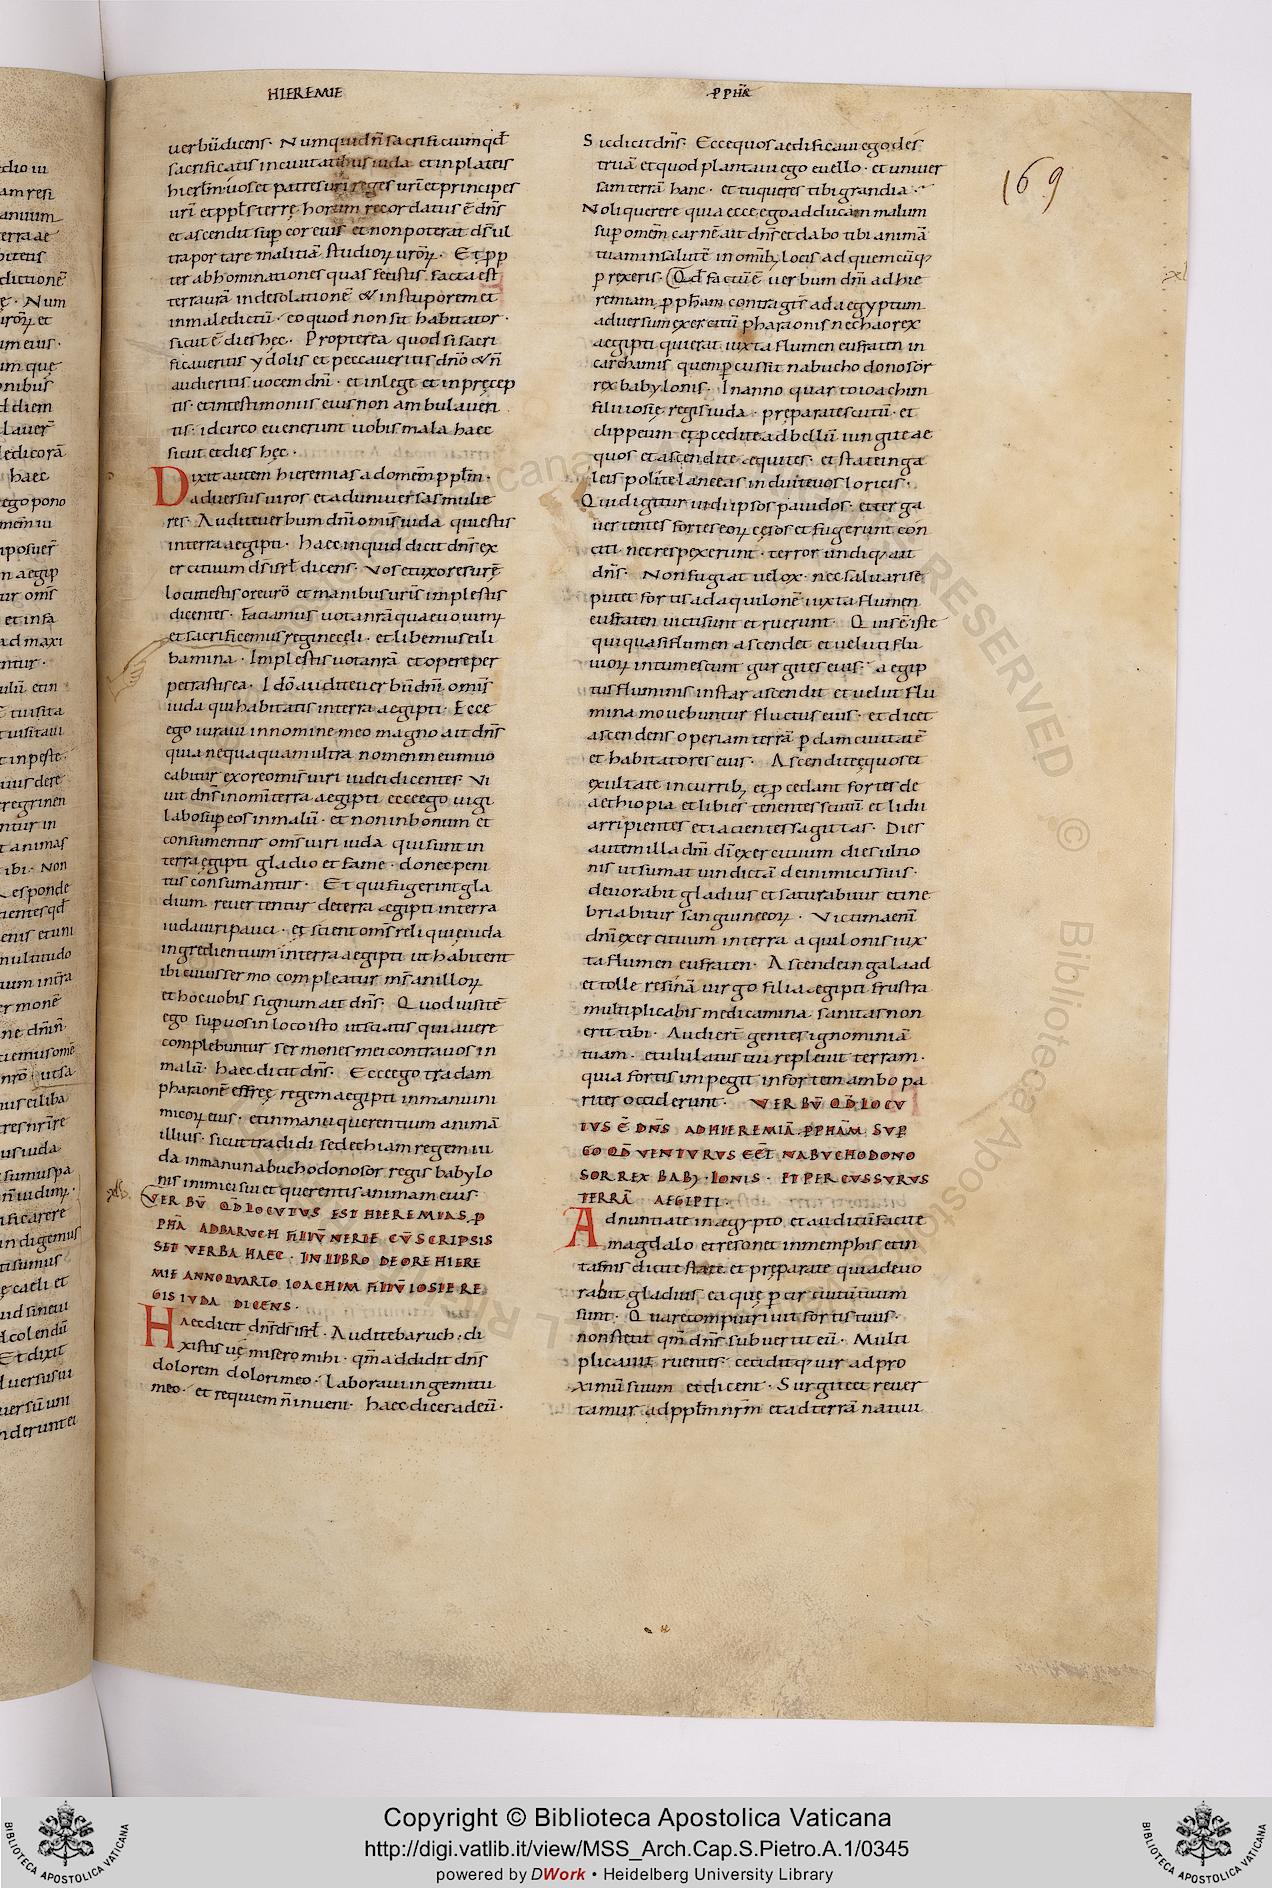 HIEREMIE
PPHAE
169
uerbū dicens · Numquid nō sacrificium qđ
sacrificatis in ciuitatibus iuda et in plateis
hierłm uos et patres uri reges uri et principes
uri et ppłs terrę horum recordatus ē dn̄s
et ascendit sup̄ cor eius et non poterat dn̄s ul
tra portare malitiā studiorꝝ urōrꝝ · Et pp̄
ter abhominationes quas fecistis facta est
terra urā in desolationē & in stuporem et
in maledictū · eo quod non sit habitator ·
sicut ē dies hęc · Propterea quod sacri
ficaueritis ydolis et peccaueritis dnō & n̄
audieritis uocem dnī · et in lege et in pręcep
tis · et in testimoniis eius non ambulaueri
tis · idcirco euenerunt uobis mala haec
sicut et dies hęc ·
Dixit autem hieremias ad omēm ppłm ·
aduersus uiros et ad uniuersas mulie
res · Audite uerbum dnī omis iuda qui estis
in terra aegipti · Haec inquid dicit dn̄s ex
ercituum ds̄ isrł dicens · Vos et uxores urę̄
locuti estis ore urō et manibus uris implestis
dicentes · Faciamus uota nrā quae uouimꝰ
et sacrificemus reginę cęli · et libemus ei li
bamina · Implestis uota nrā et opere per
petrastis ea · Idō audite uerbū dnī omis
iuda qui habitatis in terra aegipti · Ecce
ego iuraui in nomine meo magno ait dn̄s
quia nequaquam ultra nomen meum uo
cabitur ex ore omis uiri iudei dicentes · Vi
uit dn̄s in omi terra aegipti ecce ego uigi
labo sup̄ eos in malū · et non in bonum et
consumentur oms uiri iuda qui sunt in
terra ęgipti gladio et fame · donec peni
tus consumantur · Et qui fugerint gla
dium · reuertentur de terra aegipti in terra
iuda uiri pauci · et scient oms reliquię iuda
ingredientium in terra aegipti ut habitent
ibi cuius sermo compleatur ms̄ an illorꝝ
et hoc uobis signum ait dn̄s · Quod uisitē
ego sup̄ uos in loco isto ut sciatis qui a uere
complebuntur sermones mei contra uos in
malū · haec dicit dn̄s · Ecce ego tradam
pharaonē effreę regem aegipti in manu ini
micorꝝ eius · et in manu querentium animā
illius · sicut tradidi sedechiam regem iu
da in manu nabuchodonosor regis babylo
nis inimici sui et querentis animam eius ·
VERBŪ QD̄ LOCUTUS EST HIEREMIAS P
PHĀ AD BARUCH FILIŪ NERIE CŪ SCRIPSIS
SET VERBA HAEC · IN LIBRO DE ORE HIERE
MIE ANNO QUARTO IOACHIM FILIŪ IOSIE RE
GIS IUDA DICENS ·
Haec dicit dn̄s ds̄ isrł · Audite baruch · di
xistis uę misero mihi · qm̄ addidit dn̄s
dolorem dolori meo · laboraui in gemitu
meo · et requiem n̄ inueni · haec dices ad eū ·
Sic dicit dn̄s · Ecce quos aedificaui ego des
truā et quod plantaui ego euello · et uniuer
sam terrā hanc · et tu queres tibi grandia ·
Noli querere quia ecce ego adducam malum
sup̄ omēm carnē ait dn̄s et dabo tibi animā
tuam in salutē in omīb; locis ad quemcūq;
prexeris · Qđ factū ē uerbum dnī ad hie
remiam p̄phām contra gn̄tes ad aegyptum
aduersum exercitū pharaonis nechao rex
aegipti qui erat iuxta flumen eufraten in
carchamis quem p̄cussit nabuchodonosor
rex babylonis · In anno quarto ioachim
filii iosię regis iuda · pręparate scutū · et
clippeum et p̄cedite ad bellū iungite ae
quos et ascendite aequites · et state in ga
leis polite lanceas induite uos loricis ·
Quid igitur uidi ipsos pauidos · et terga
uertentes fortes eorꝝ cęsos et fugerunt con
citi · nec respexerunt · terror undiq; ait
dn̄s · Non fugiat uelox · nec saluari se
putet fortis ad aquilonē iuxta flumen
eufraten uicti sunt et ruerunt · Quis ē iste
qui quasi flumen ascendet et ueluti flu
uiorꝝ intumescunt gurgites eius · aegip
tus fluminis instar ascendit et uelut flu
mina mouebuntur fluctus eius · et dicet
ascendens operiam terrā p̄dam ciuitatē
et habitatores eius · Ascendite equos et
exultate in currib; et p̄cedant fortes de
aethiopia et libies tenentes scutū et lidii
arripientes et iacientes sagittas · Dies
autem illa dnī dī exercituum dies ultio
nis ut sumat uindictā de inimicis suis ·
deuorabit gladius et saturabitur et ine
briabitur sanguine eorꝝ · Victima enī
dnī exercituum in terra aquilonis iux
ta flumen eufraten · Ascende in galaad
et tolle resinā uirgo filia aegipti frustra
multiplicabis medicamina sanitas non
erit tibi · Audierū gentes ignominiā
tuam · et ululatus tui repleuit terram ·
quia fortis impegit in fortem ambo pa
riter occiderunt · VERBŪ QD̄ LOCU
TUS Ē DN̄S AD HIEREMIĀ P̄PHĀM SUP̄
EO QD̄ VENTURUS EĒT NABUCHODONO
SOR REX BABYLONIS · ET PERCUSSURUS
TERRĀ AEGIPTI ·
Adnuntiate in aegypto et auditū facite
magdalo et resonet in memphis et in
tafnis dicite state et pręparate quia deuo
rabit gladius ea quę p̄ circuitū tuum
sunt · Quare computruit fortis tuus ·
non stetit qm̄ dn̄s subuertit eū · Multi
plicauit ruentes · ceciditq; uir ad pro
ximū suum et dicent · Surgite et reuer
tamur ad ppłm nrm et ad terrā natiui
Copyright © Biblioteca Apostolica Vaticana
http://digi.vatlib.it/view/MSS_Arch.Cap.S.Pietro.A.1/0345
powered by DWork • Heidelberg University Library